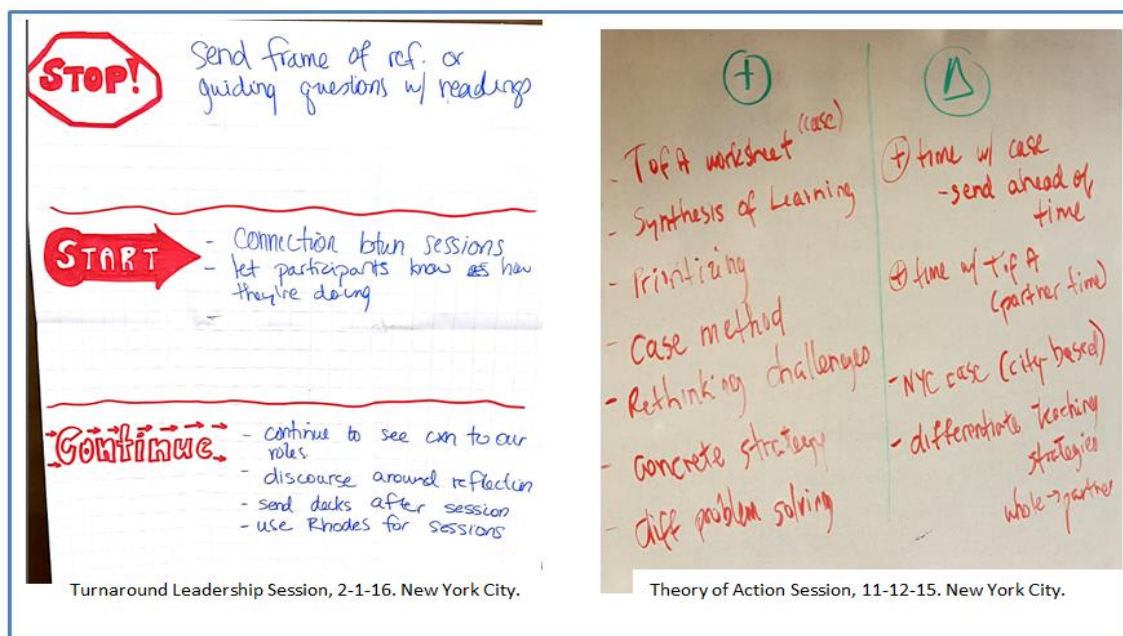 STOP!
Send frame of ref. or
guiding questions w/ readings
START
- Connection btwn sessions
- let participants know how
they're doing
-
Continue
- continue to see cxn to our
roles
- discourse around reflection
- send decks after session
- use Rhodes for sessions
Turnaround Leadership Session, 2-1-16. New York City.
+
- T of A worksheet (case)
- Synthesis of Learning
- Prioritizing
- Case method
- Rethinking challenges
- concrete strategy
- diff problem solving
Δ
+ time w/ case
- send ahead of
time
+ time w/ T of A
(partner time)
- NYC case (city-based)
- differentiate teaching
strategies
whole → partner
Theory of Action Session, 11-12-15. New York City.